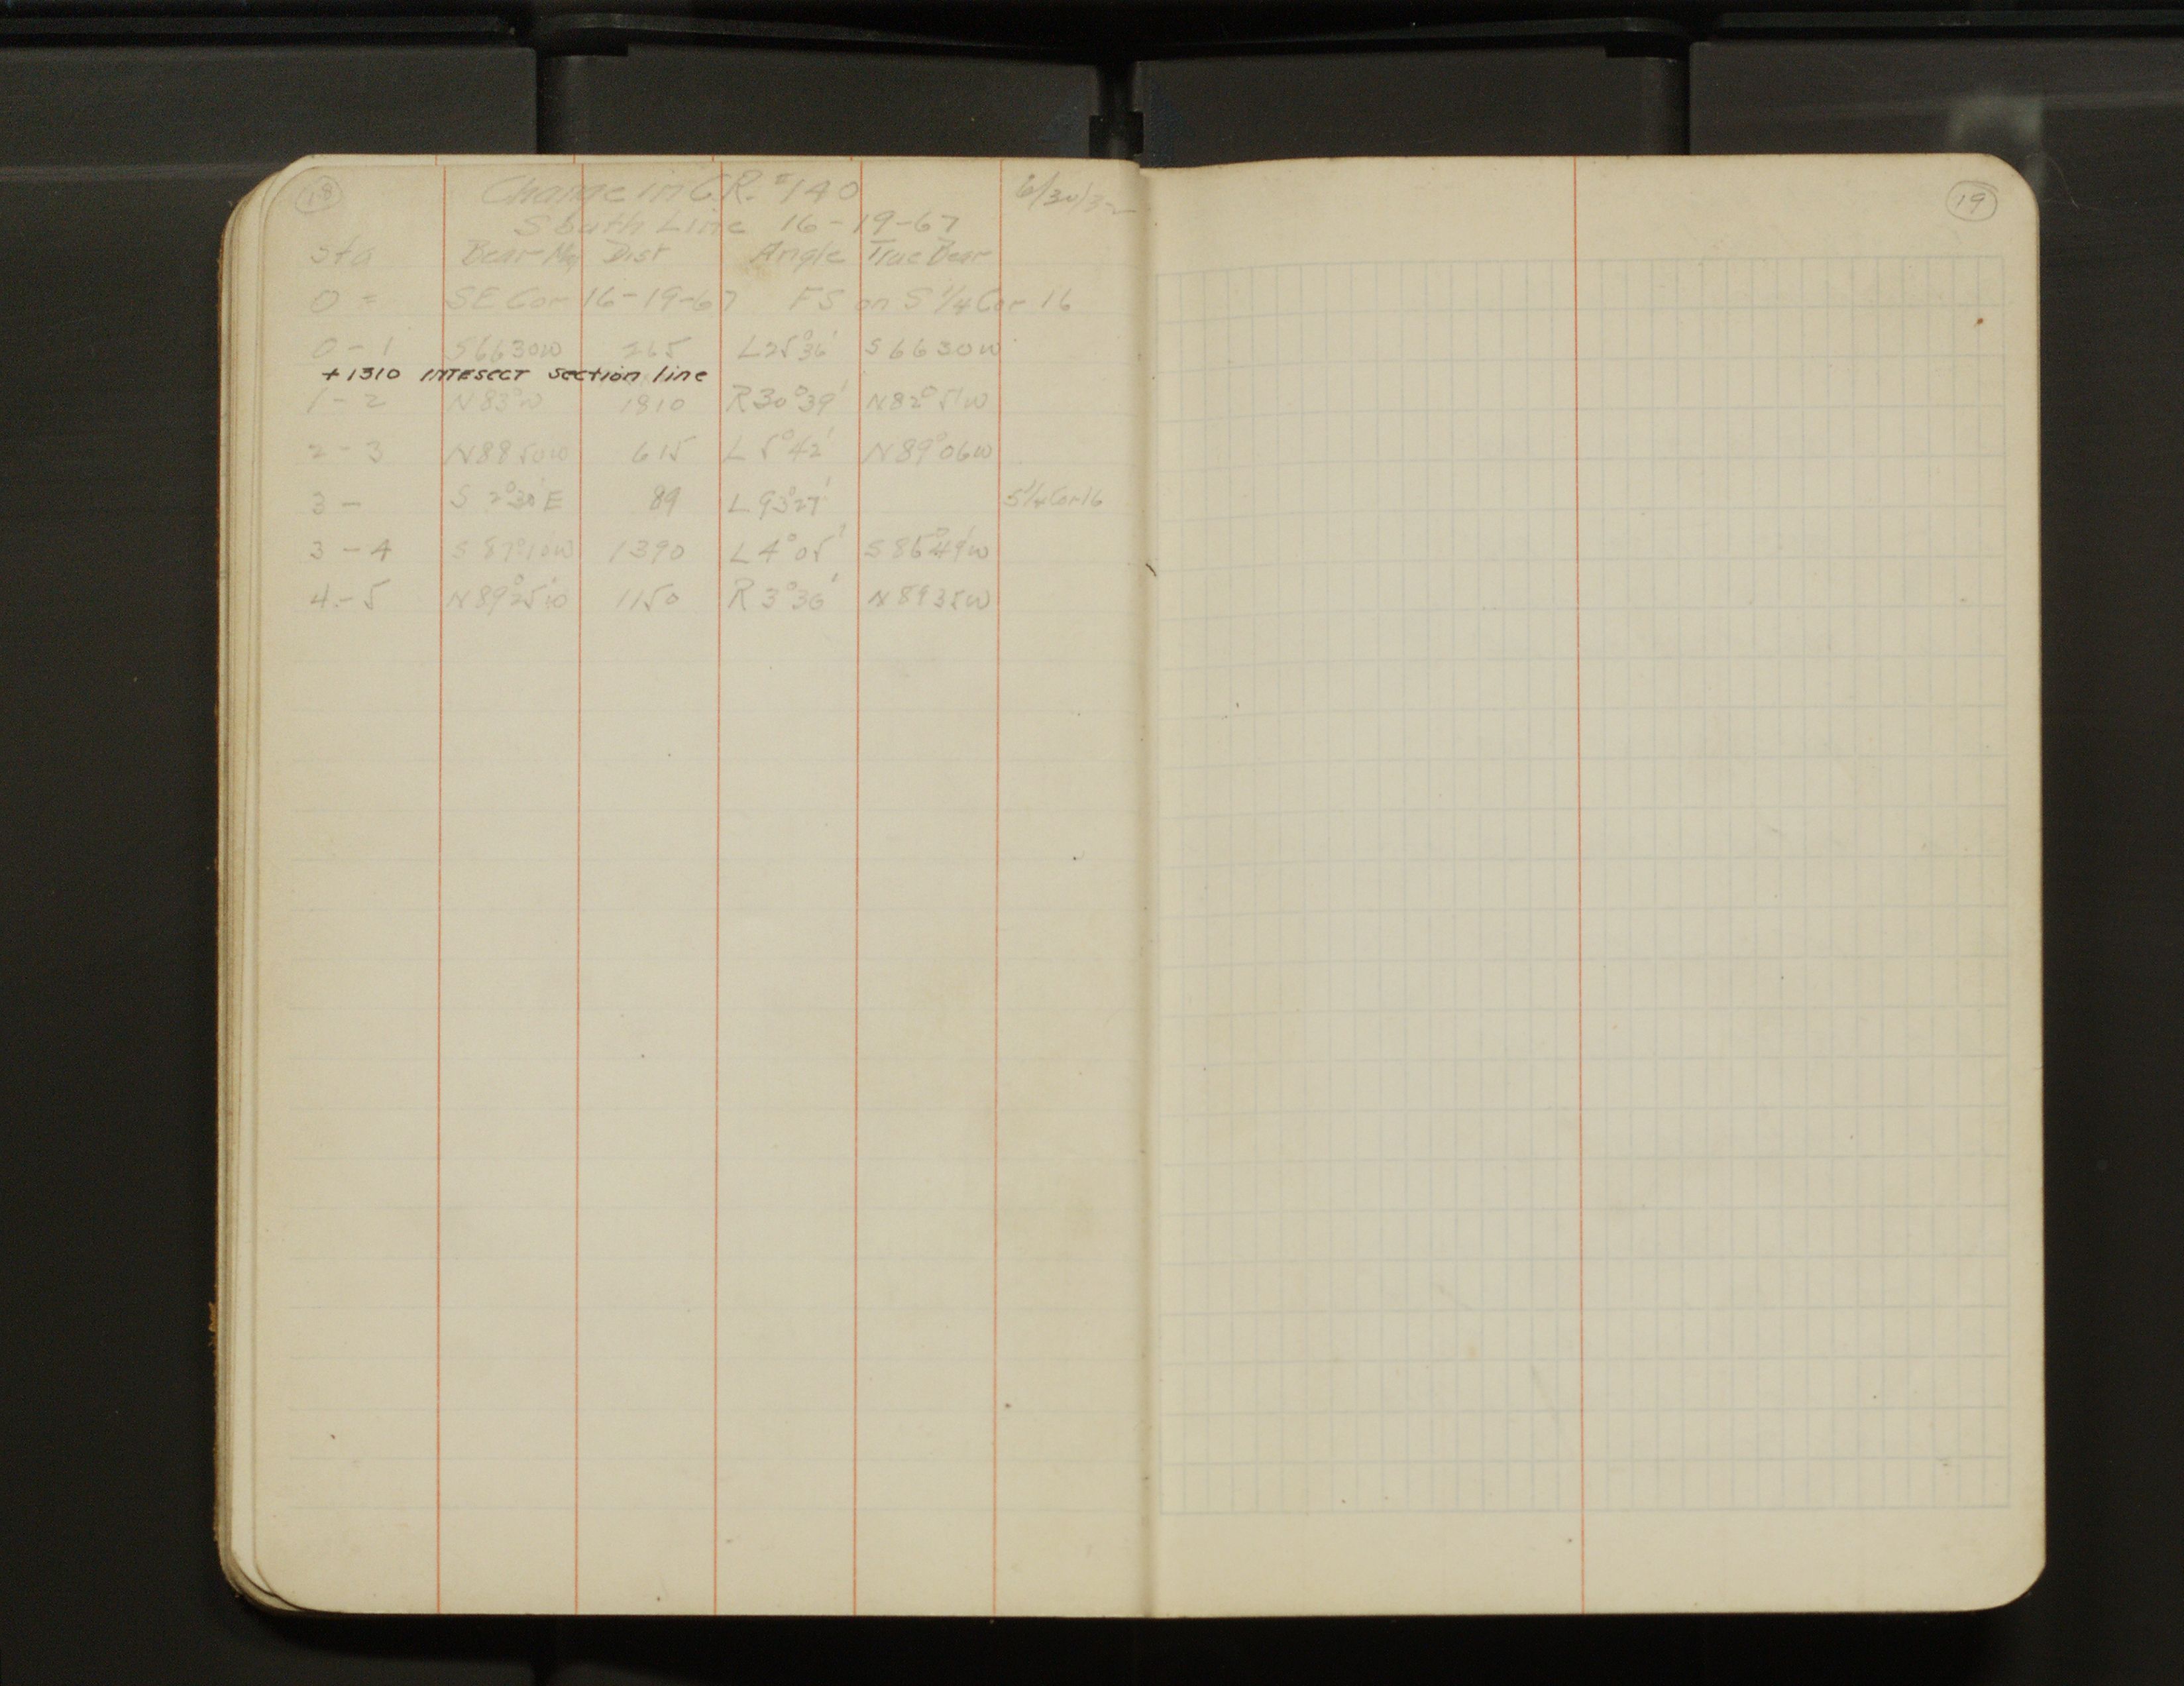 18 Change in C.R. #140 6/30/32
South Line 16-19-67
Sta Bear Mag Dist Angle True Bear
0 = SE Cor 16-19-67 FS on S 1/4 Cor 16
0-1 S6630W 265 L25°36' S6630W
+1310 INTESECT section line
1-2 N83°W 1810 R30°39' N82°51'W
2-3 N8850W 615 L5°42' N89°06W
3- S 2°30'E 89 L93°27' S1/4 Cor 16
3-4 S87°10W 1390 L4°05' S86°49'W
4-5 N89°25'W 1150 R3°36' N8935W
19